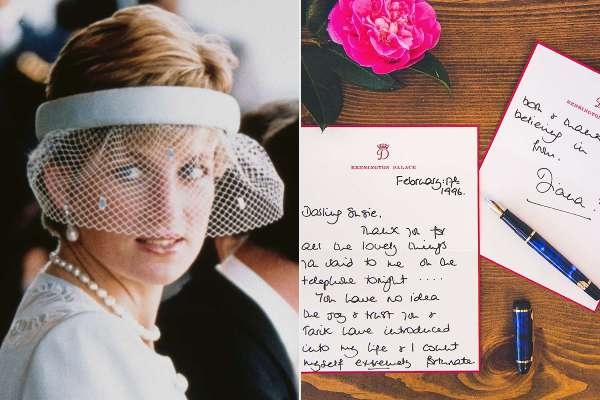 D
KENSINGTON PALACE
February: 17th
1996.
Darling Susie,
Thank you for
all the lovely things
you said to me on the
telephone tonight ....
You have no idea
the joy & trust you &
Tarik have introduced
into my life & I count
myself extremely fortunate
D
KENSINGTON
believing in
Diana